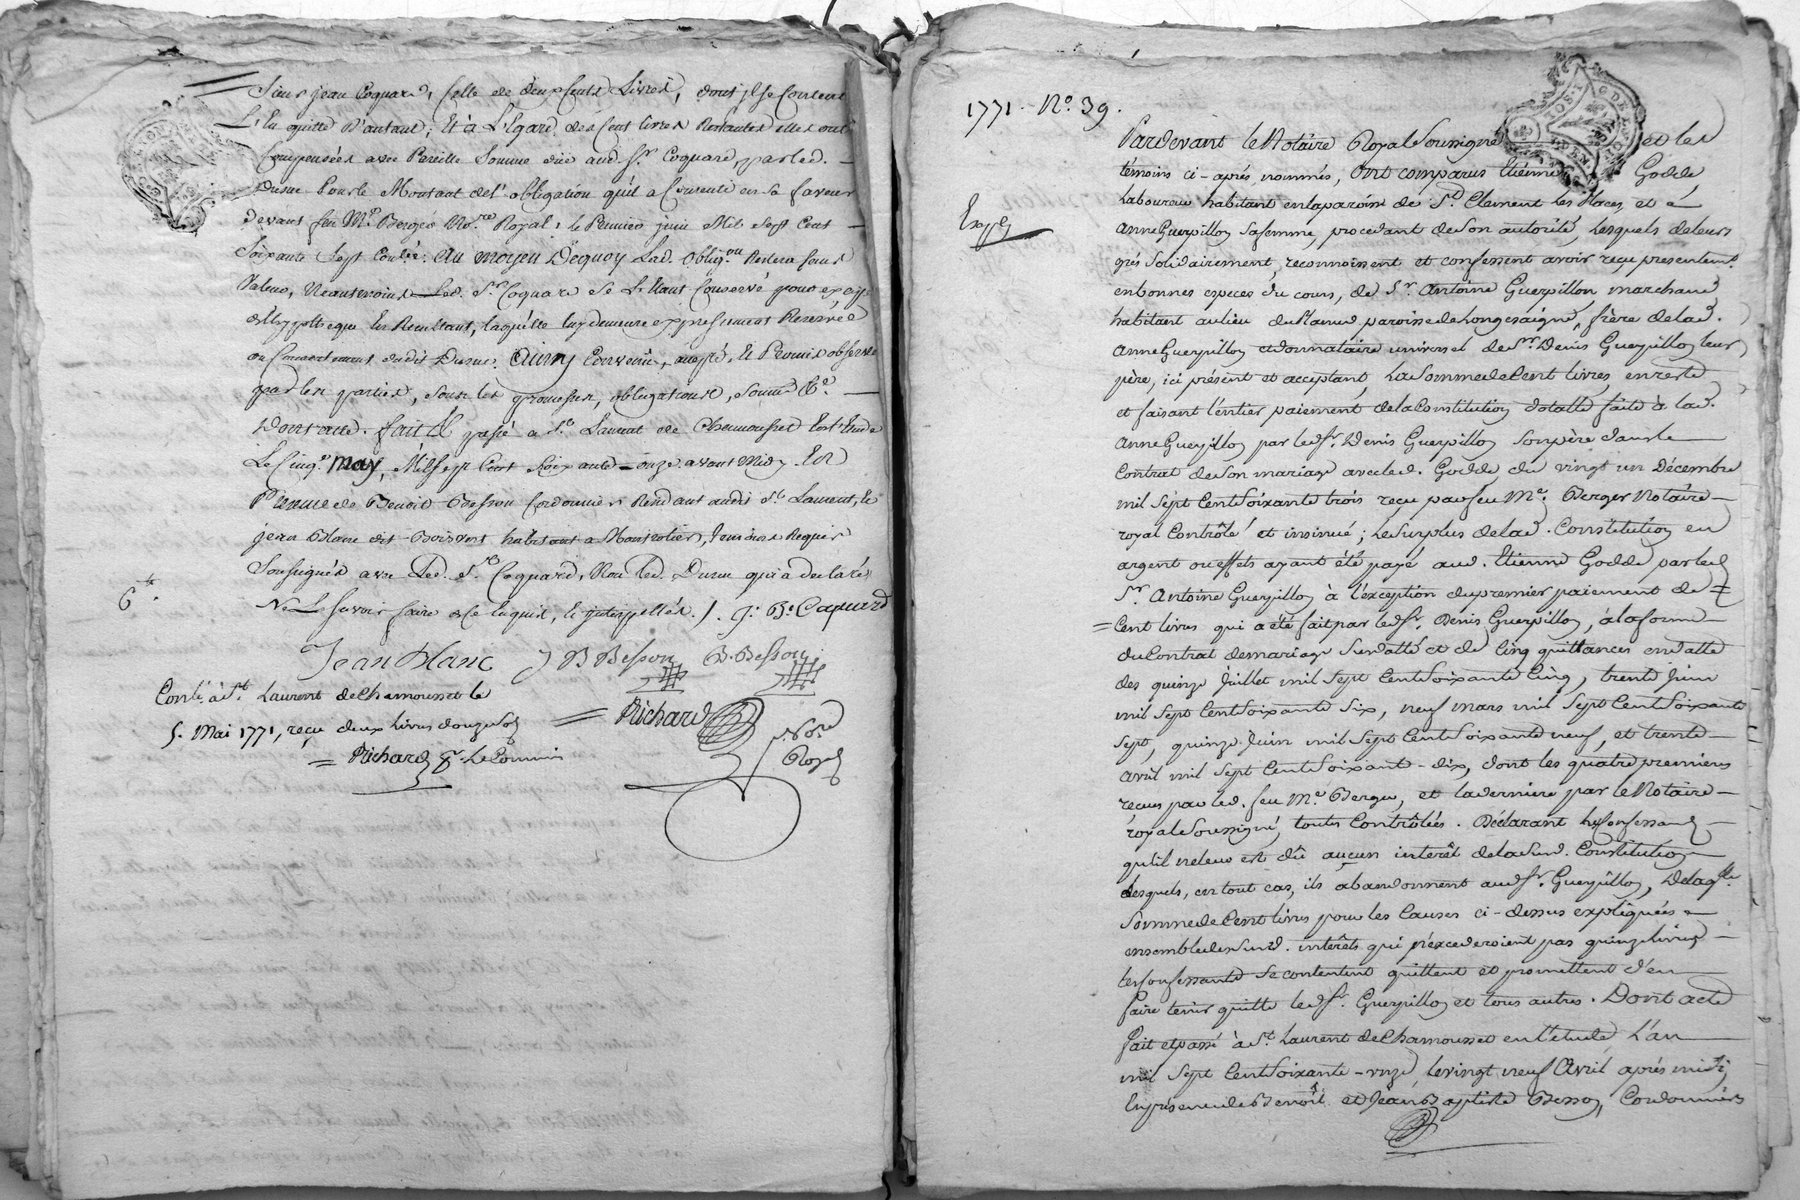 Sieur jean Coquard, Celle de deux Cents Livres, dont il se Contente
L'En quitte D'autant; Et à L'Egard des Cent livres Restantes elles ont
Compensées avec Pareille Somme düe aud. Sr. Coquard, par led.
Durue Pour le Montant de l'obligation qu'il a Consenti en Sa faveur
devant feu Me. Berger No.re Royal, le Premier juin Mil Sept Cent
Soixante Sept Contlée. Au moyen Dequoy Lad. Oblig.on Restera Sans
Valeur, Neantmoins Led. Sr. Coquard Se
d'Hypotheque En Resultant, laquelle luy demeure expressement Reservée
du Consentement dudit Durue. Ainsy Convenû, accepté, Et Promis observer
par les parties, Sous les promesses, obligations, Soums. &a.
Dont acte. fait & passé a St. Laurent de Chamousset Est Etude
Le Cinq. May, Mil Sept Cent Soixante-onze avant Midy. En
Presence de Benoit Besson Cordonnier Residant audit St. Laurent, Et
jean Blanc dit Boisvert habitant a Montrotier, Temoins Requis
Soussignés avec Led. Sr. Coquard, Non Led. Durue qui a declaré
Ne Le Savoir faire de ce Enquis, Et jnterpellés. /.
Jean Blanc J B Besson B. Besson
Contlé. à St. Laurent de Chamousset le
5. Mai 1771, reçu deux Livres douze Sols
Richard
No.re Royal
= Richard pr. Le Commis
1771. No. 39.
Pardevant le Notaire Royal Soussigné et les
témoins ci-après nommés, Ont comparus Etienne Godde,
Laboureur habitant en la paroisse de St. Clement les Places, et
Anne Guerpillon Sa femme, procedant de Son autorité, Lesquels de leurs
grés Solidairement, reconnoissent et confessent avoir reçu presentemt.
en bonnes especes du cours, de Sr. Antoine Guerpillon marchand
habitant au lieu du paroisse de Longesaigne, frère de lad.
Anne Guerpillon et donnataire universel de Sr. Denis Guerpillon leur
père, ici présent et acceptant, La Somme de Cent livres, en reste
et faisant l'entier paiement de la Constitution dotalle faite à lad.
Anne Guerpillon par led. Sr. Denis Guerpillon Son père dans le
Contrat de Son mariage avec led. Godde du vingt un Décembre
mil Sept Cent Soixante trois reçu par feu Me. Berger Notaire
royal Controlé et insinué; Le Surplus de lad. Constitution en
argent ou effets ayant été payé aud. Etienne Godde par led.
Sr. Antoine Guerpillon à l'exception du premier paiement de
= Cent livres qui a été fait par led. Sr. Denis Guerpillon, à la forme
du Contrat de mariage Surdatté et de Cinq quittances en datte
des quinze Juillet mil Sept Cent Soixante Cinq, trente Juin
mil Sept Cent Soixante Six, neuf mars mil Sept Cent Soixante
Sept, quinze Juin mil Sept Cent Soixante neuf, et trente
avril mil Sept Cent Soixant-dix, dont les quatre premieres
reçues par led. feu Me. Berger, et la derniere par le Notaire
royal Soussigné, toutes Contrôlées. Déclarant les Confessants
qu'il ne leur est dû aucun interêt de la Surd. Constitution
desquels, en tout cas, ils abandonnent aud. Sr. Guerpillon, De laqlle.
Somme de Cent livres pour les Causes ci-dessus expliquées
ensemble des Surd. interêts qui n'excederoient pas quinze livres
les Confessants Se contentent quittent et promettent d'en
faire tenir quitte led. Sr. Guerpillon et tous autres. Dont acte
fait et passé à St. Laurent de Chamousset en l'étude L'an
mil Sept Cent Soixante-onze, le vingt neuf Avril après midi
En présence de Benoît et Jean Baptiste Besson, Cordonniers